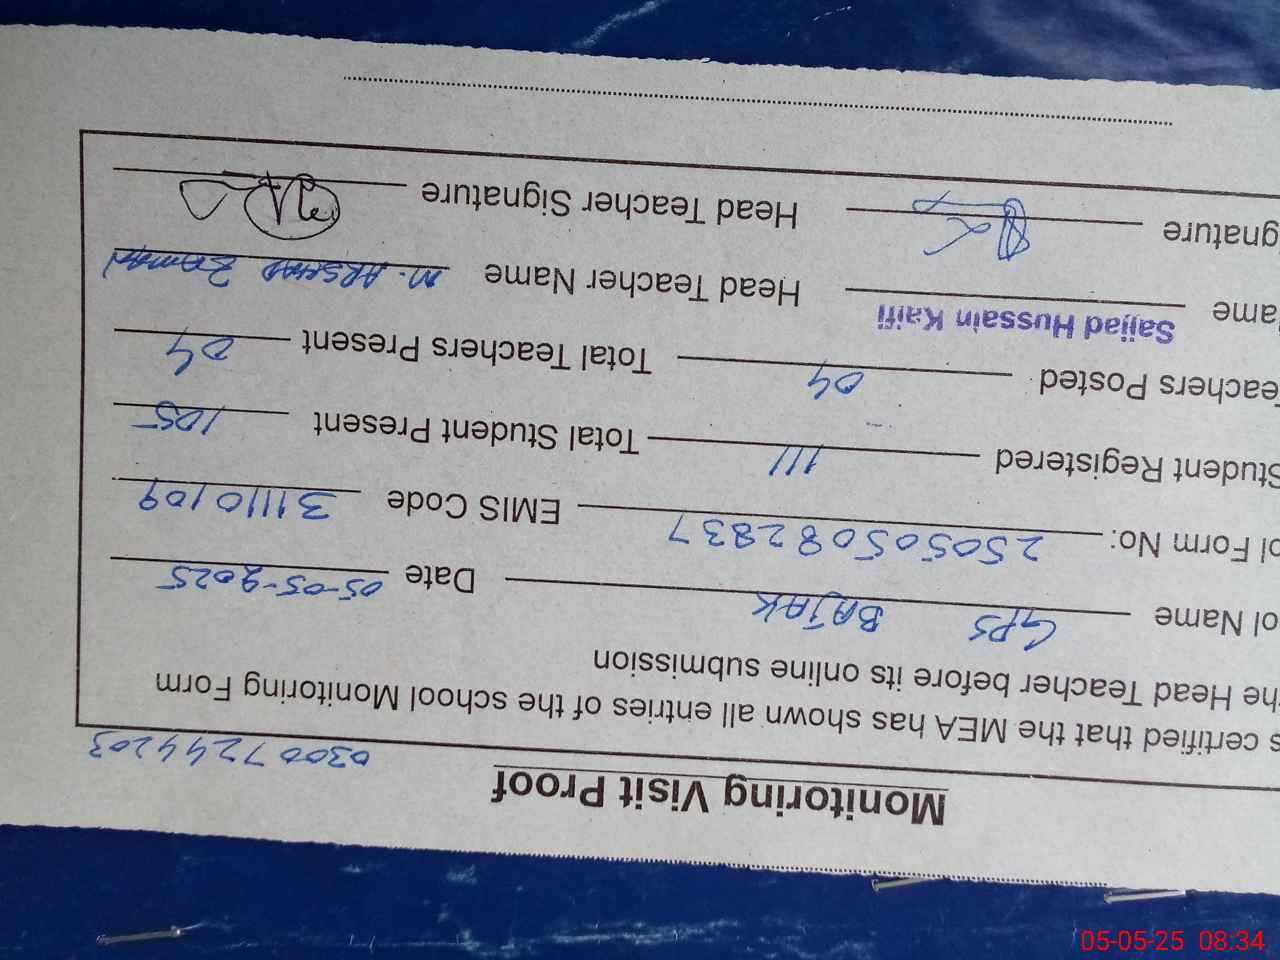 Monitoring Visit Proof
03007244203
s certified that the MEA has shown all entries of the school Monitoring Form
he Head Teacher before its online submission
ol Name GPS BAJAK Date 05-05-2025
ol Form No: 250505082837 EMIS Code 31110109
Student Registered 111 Total Student Present 105
Teachers Posted 04 Total Teachers Present 04
ame Sajjad Hussain Kaifi Head Teacher Name M. ARSHAD ZAMAN
gnature Head Teacher Signature
05-05-25 08:34